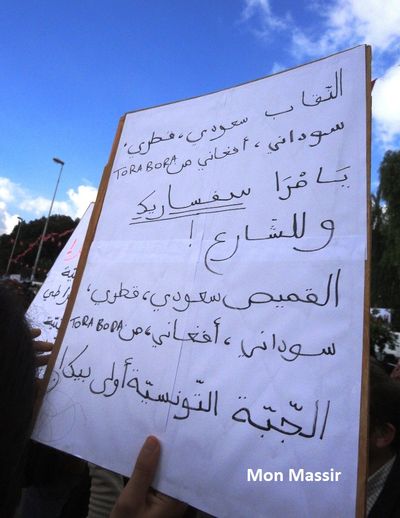 النّقاب سعودي، قطري،
سوداني، أفغاني من TORA BORA
يَا مْرَا سفساريك
وللشّارع !
القميص سعودي، قطري،
سوداني، أفغاني، من TORA BORA
الجّبّة التّونسيّة أولى بيك !
Mon Massir